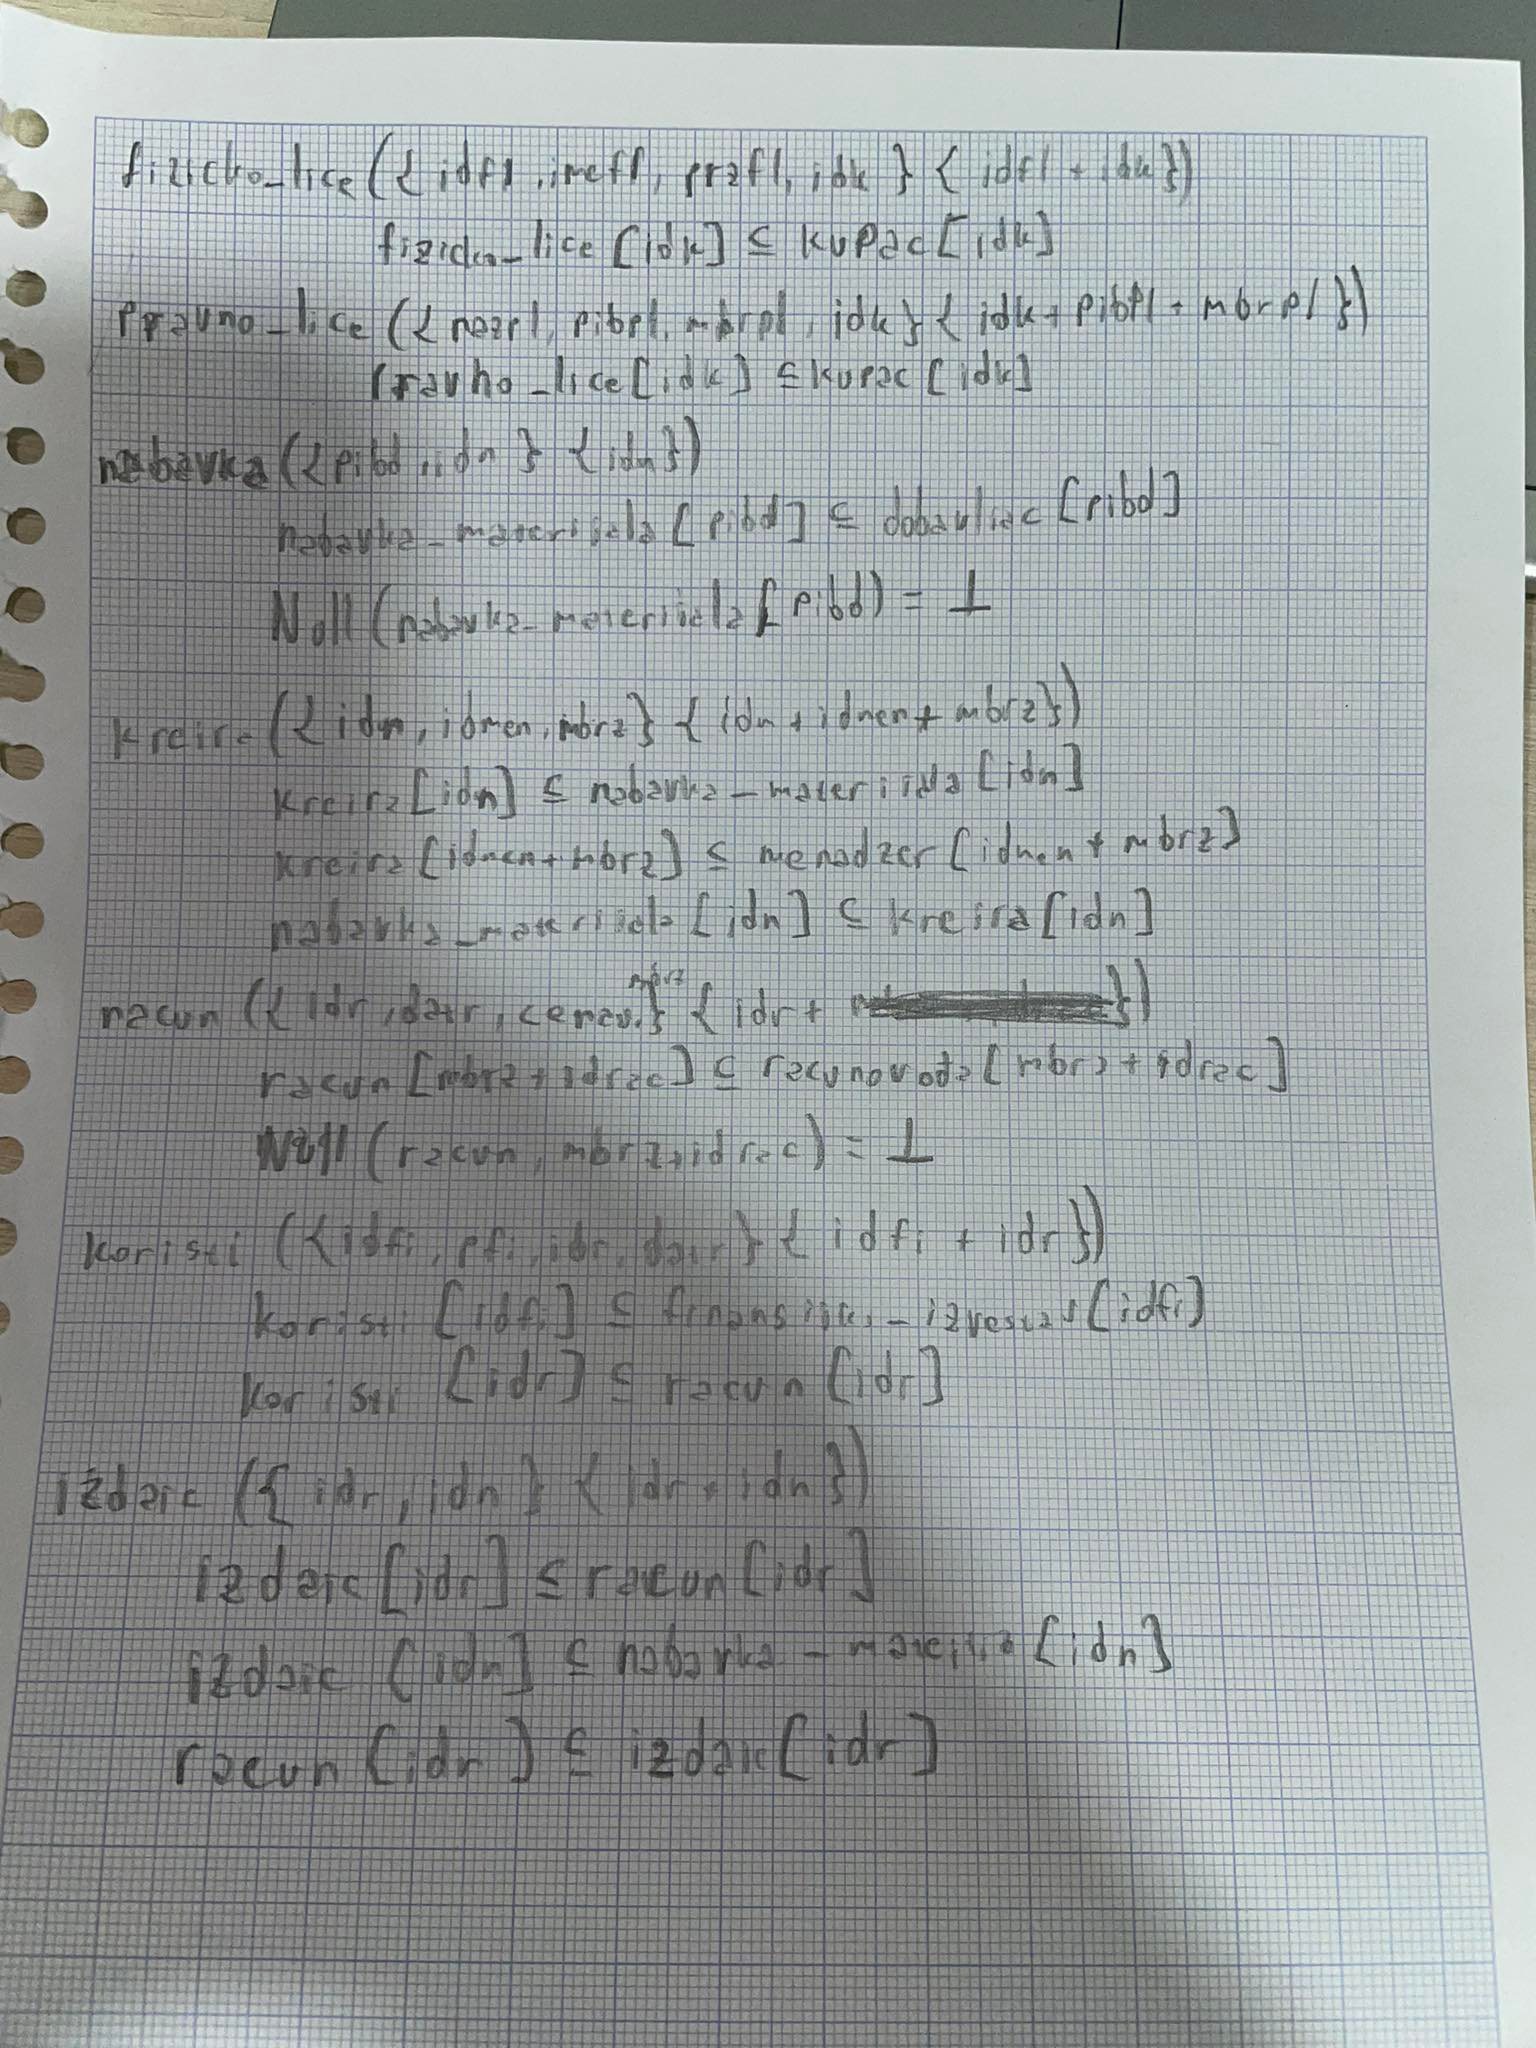 fizicko_lice ({idfl, imefl, przfl, idk} {idfl + idk})
fizicko_lice [idk] ⊆ kupac [idk]
pravno_lice ({nazpl, pibpl, mbrpl, idk} {idk + pibpl + mbrpl})
pravno_lice [idk] ⊆ kupac [idk]
nabavka ({pibd, idn} {idn})
nabavka_materijala [pibd] ⊆ dobavljac [pibd]
Null (nabavka_materijala [pibd) = ⊥
kreira ({idn, idmen, mbrz} {idn + idmen + mbrz})
kreira [idn] ⊆ nabavka_materijala [idn]
kreira [idmen + mbrz] ⊆ menadzer [idmen + mbrz]
nabavka_materijala [idn] ⊆ kreira [idn]
racun ({idr, datr, mbrz} {idr + })
racun [mbrz + idrac] ⊆ racunovođa [mbrz + idrac]
Null (racun, mbrz + idrac) = ⊥
koristi ({idfi, pfi, idr, datr} {idfi + idr})
koristi [idfi] ⊆ [idfi]
koristi [idr] ⊆ racun [idr]
izdaje ({idr, idn} {idr + idn})
izdaje [idr] ⊆ racun [idr]
izdaje [idn] ⊆ [idn]
racun [idr] ⊆ izdaje [idr]